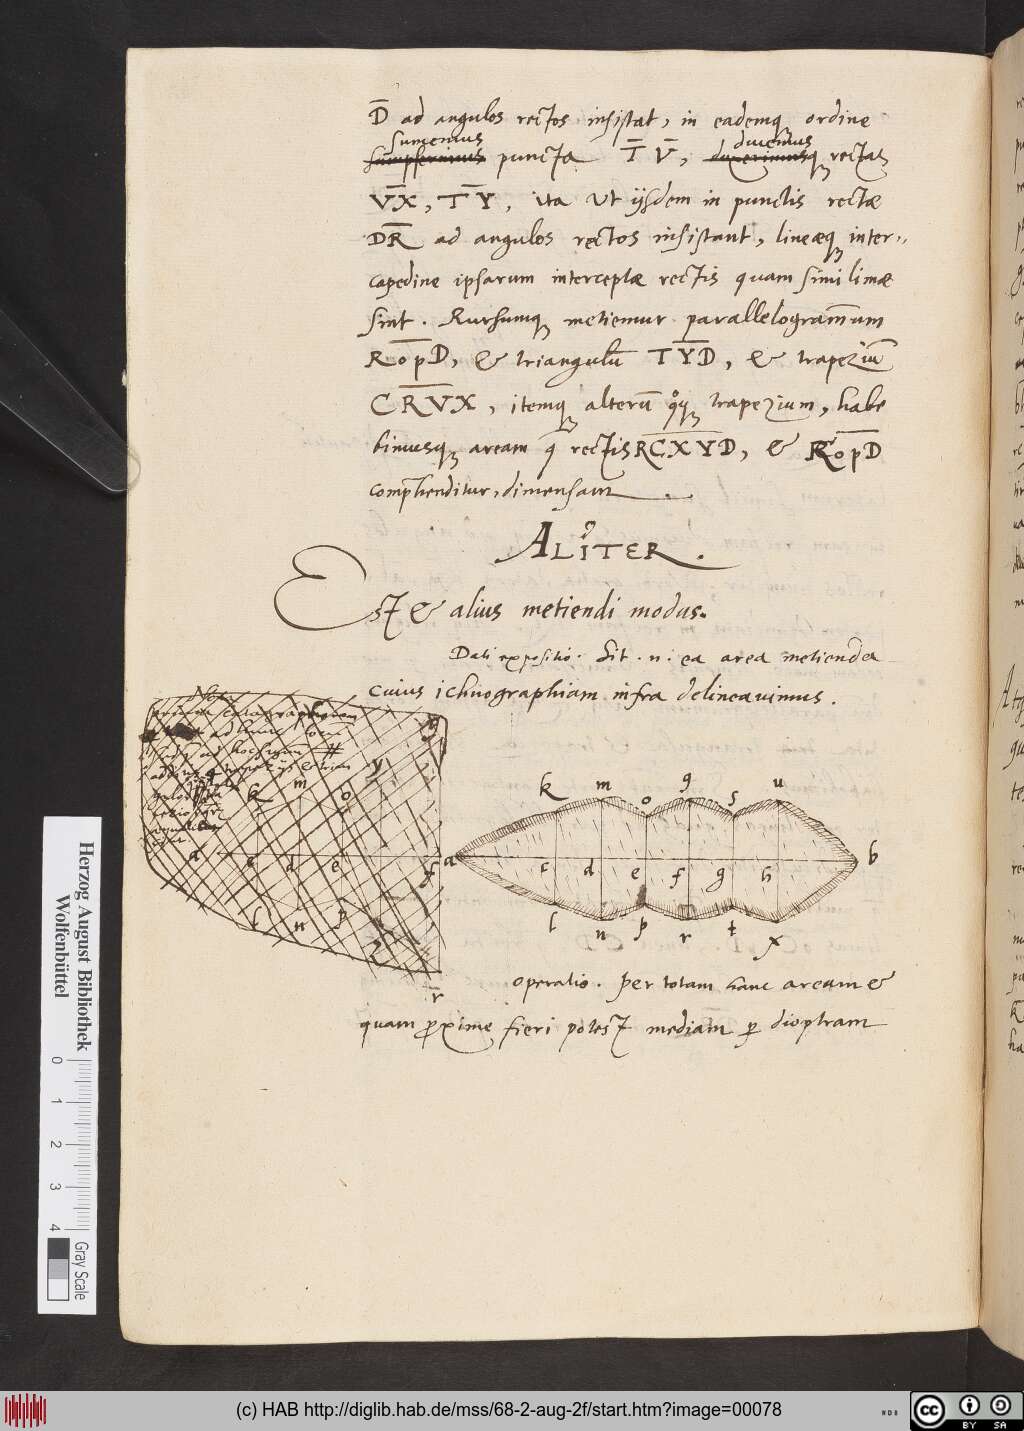 D̅ ad angulos rectos insistat, in eademq ordine
sumemus ducemus
sumpserimus puncta T̅ V̅, duxerimusq rectas
V̅X̅, T̅Y̅, ita ut ijsdem in punctis rectæ
DR̅ ad angulos rectos insistant, lineæq inter-
capedine ipsarum interceptæ rectis quam similimæ
sint. Rursumq metiemur parallelogram̅um
Ro̅p̅D, & triangulū TY̅D, & trapeziū
CR̅V̅X, itemq alterū qq trapezium, habe
bimusq aream q̄ rectis RC̅X̅Y̅D, & Ro̅p̅D
comphenditur, dimensam.
ALITER.
Est & alius metiendi modus.
Dati expositio. Sit .n. ea area metienda
cuius ichnographiam infra delineavimus.
k m o q s u
a c d e f g h b
l n p r t x
k m o y q
a c d e f
l n p z
r
operatio. Per totam hanc aream &
quam pxime fieri potest mediam p dioptram
Herzog August Bibliothek
Wolfenbüttel
0 1 2 3 4
Gray Scale
(c) HAB http://diglib.hab.de/mss/68-2-aug-2f/start.htm?image=00078
cc BY SA